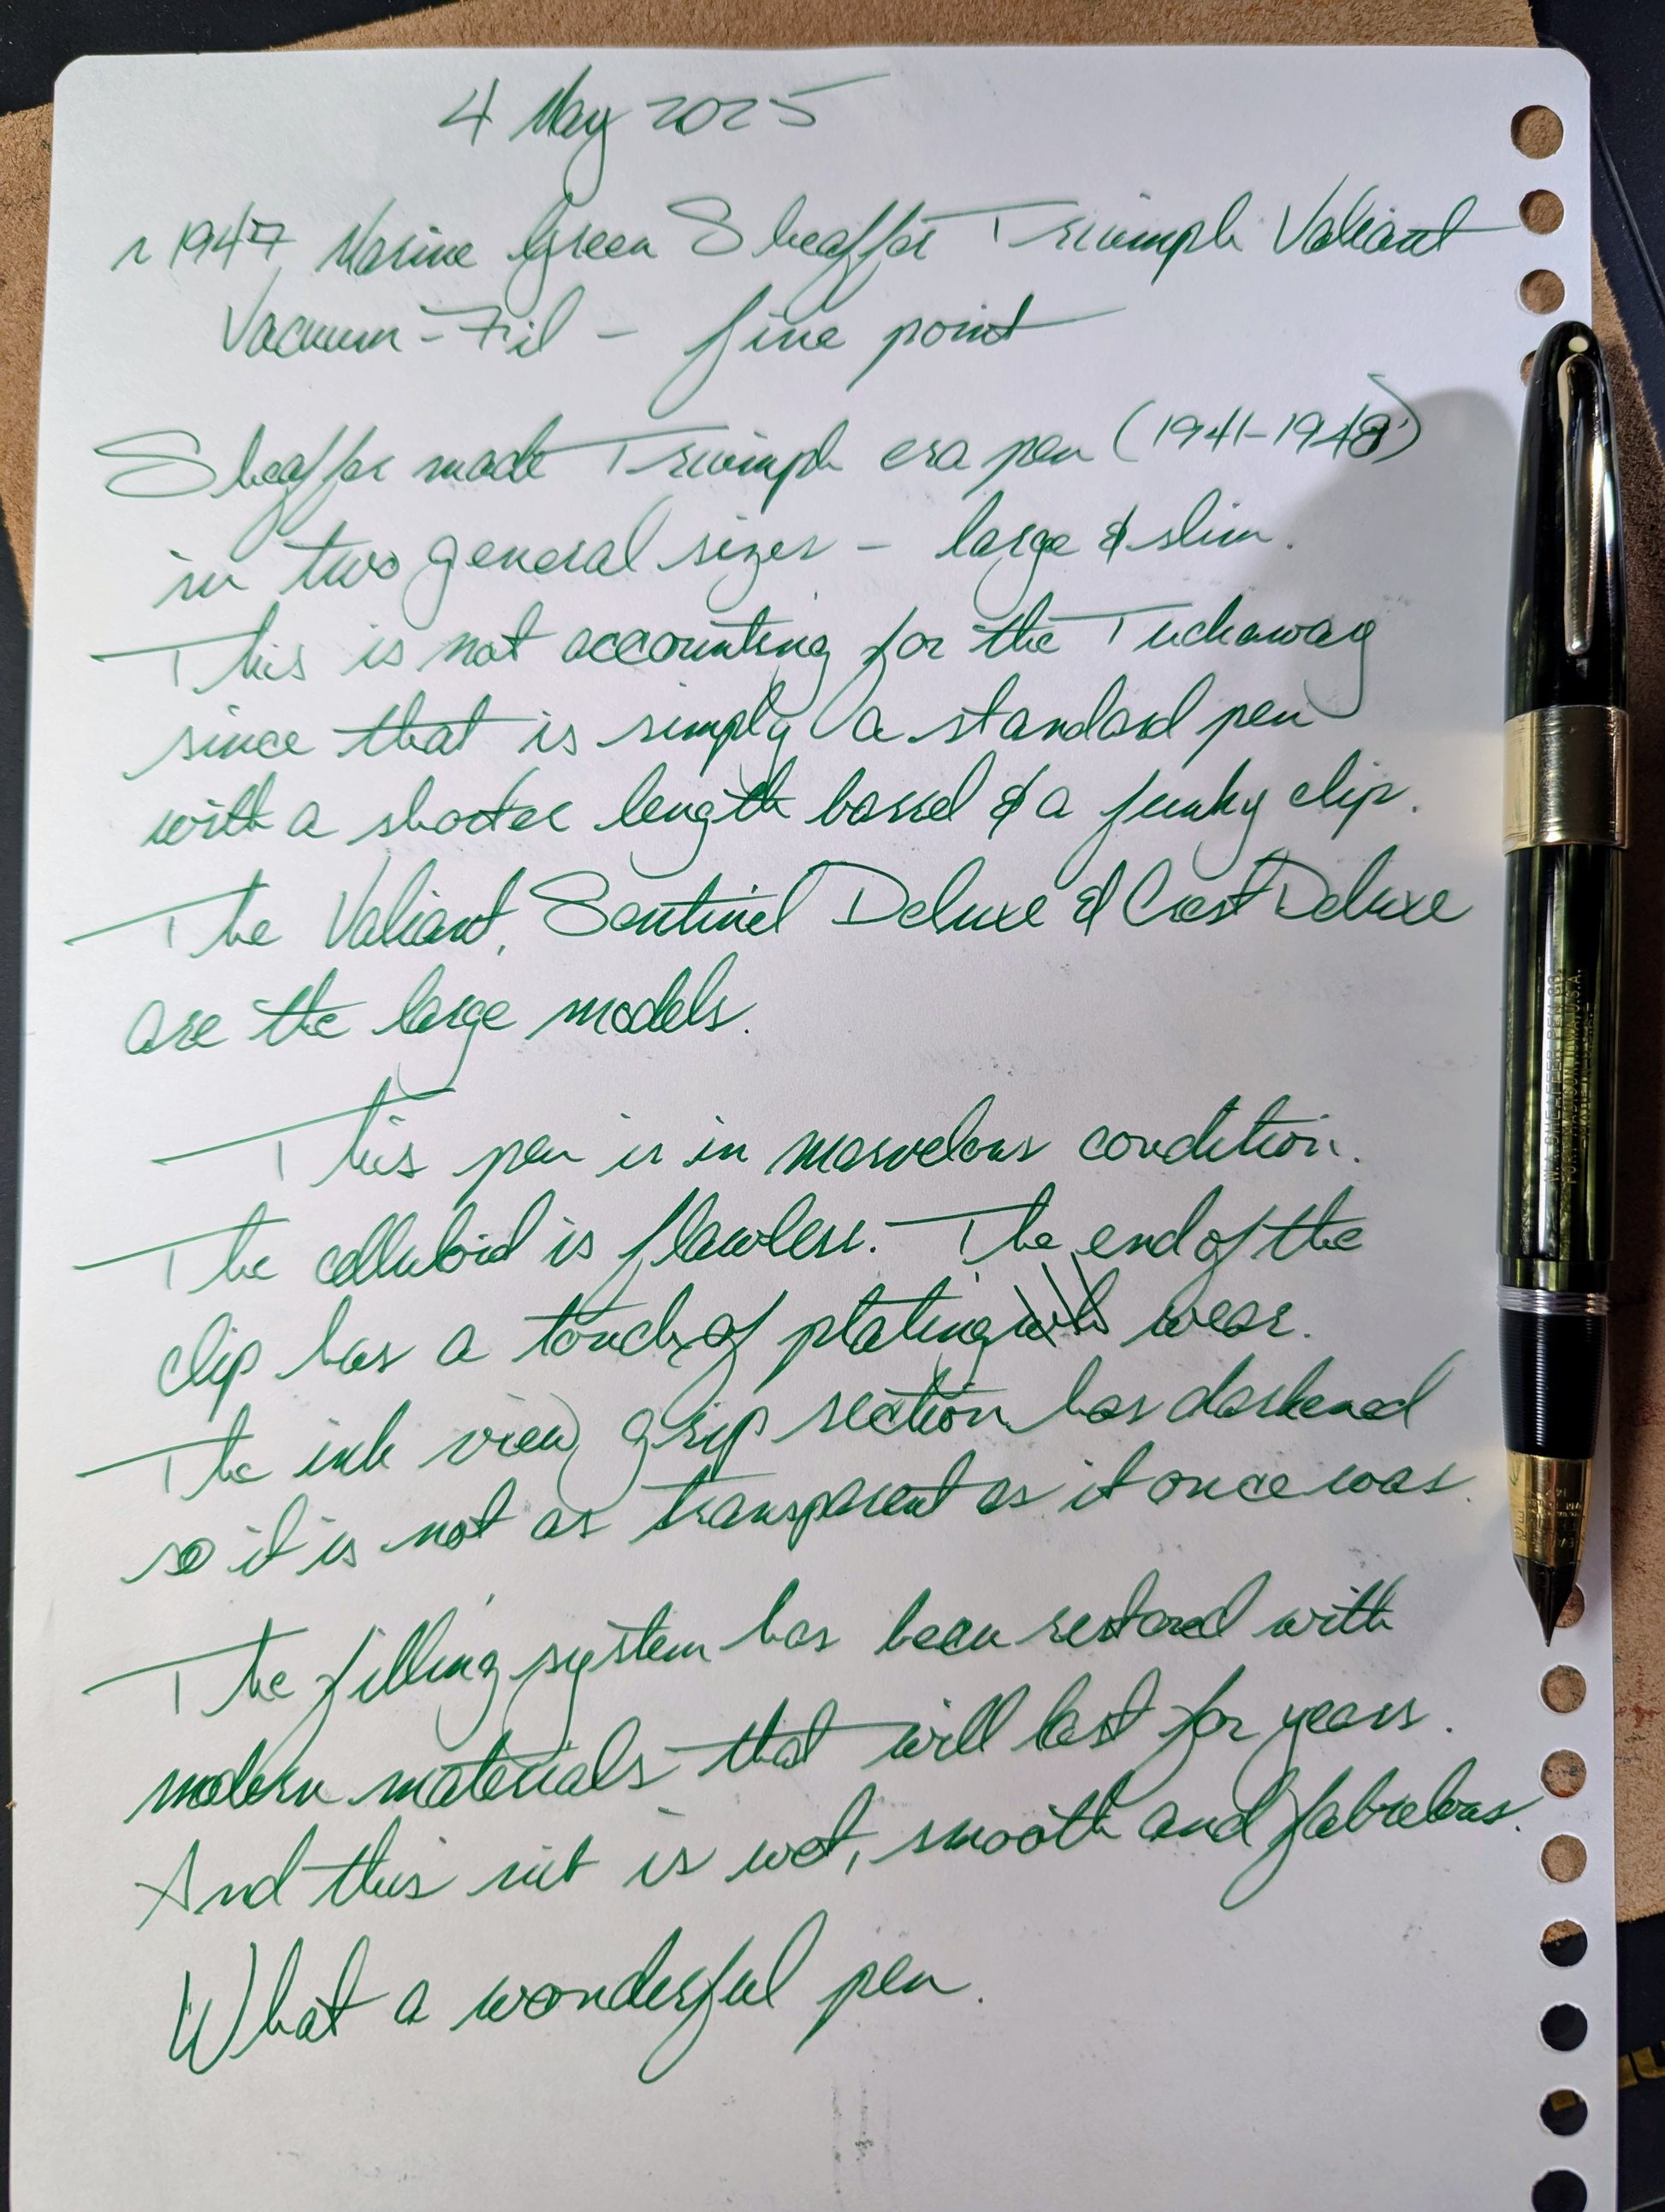 4 May 2025
~ 1947 Marine Green Sheaffer Triumph Valiant
Vacuum-Fil - fine point
Sheaffer made Triumph era pen (1941-1948)
in two general sizes - large & slim.
This is not accounting for the Tuckaway
since that is simply a standard pen
with a shorter length barrel & a funky clip.
The Valiant, Sentinel Deluxe & Crest Deluxe
are the large models.
This pen is in marvelous condition.
The celluloid is flawless. The end of the
clip has a touch of plating wear.
The ink view grip section has darkened
so it is not as transparent as it once was.
The filling system has been restored with
modern materials that will last for years.
And this nib is wet, smooth and fabulous.
What a wonderful pen.
W.A. SHEAFFER PEN CO.
FORT MADISON, IOWA, U.S.A.